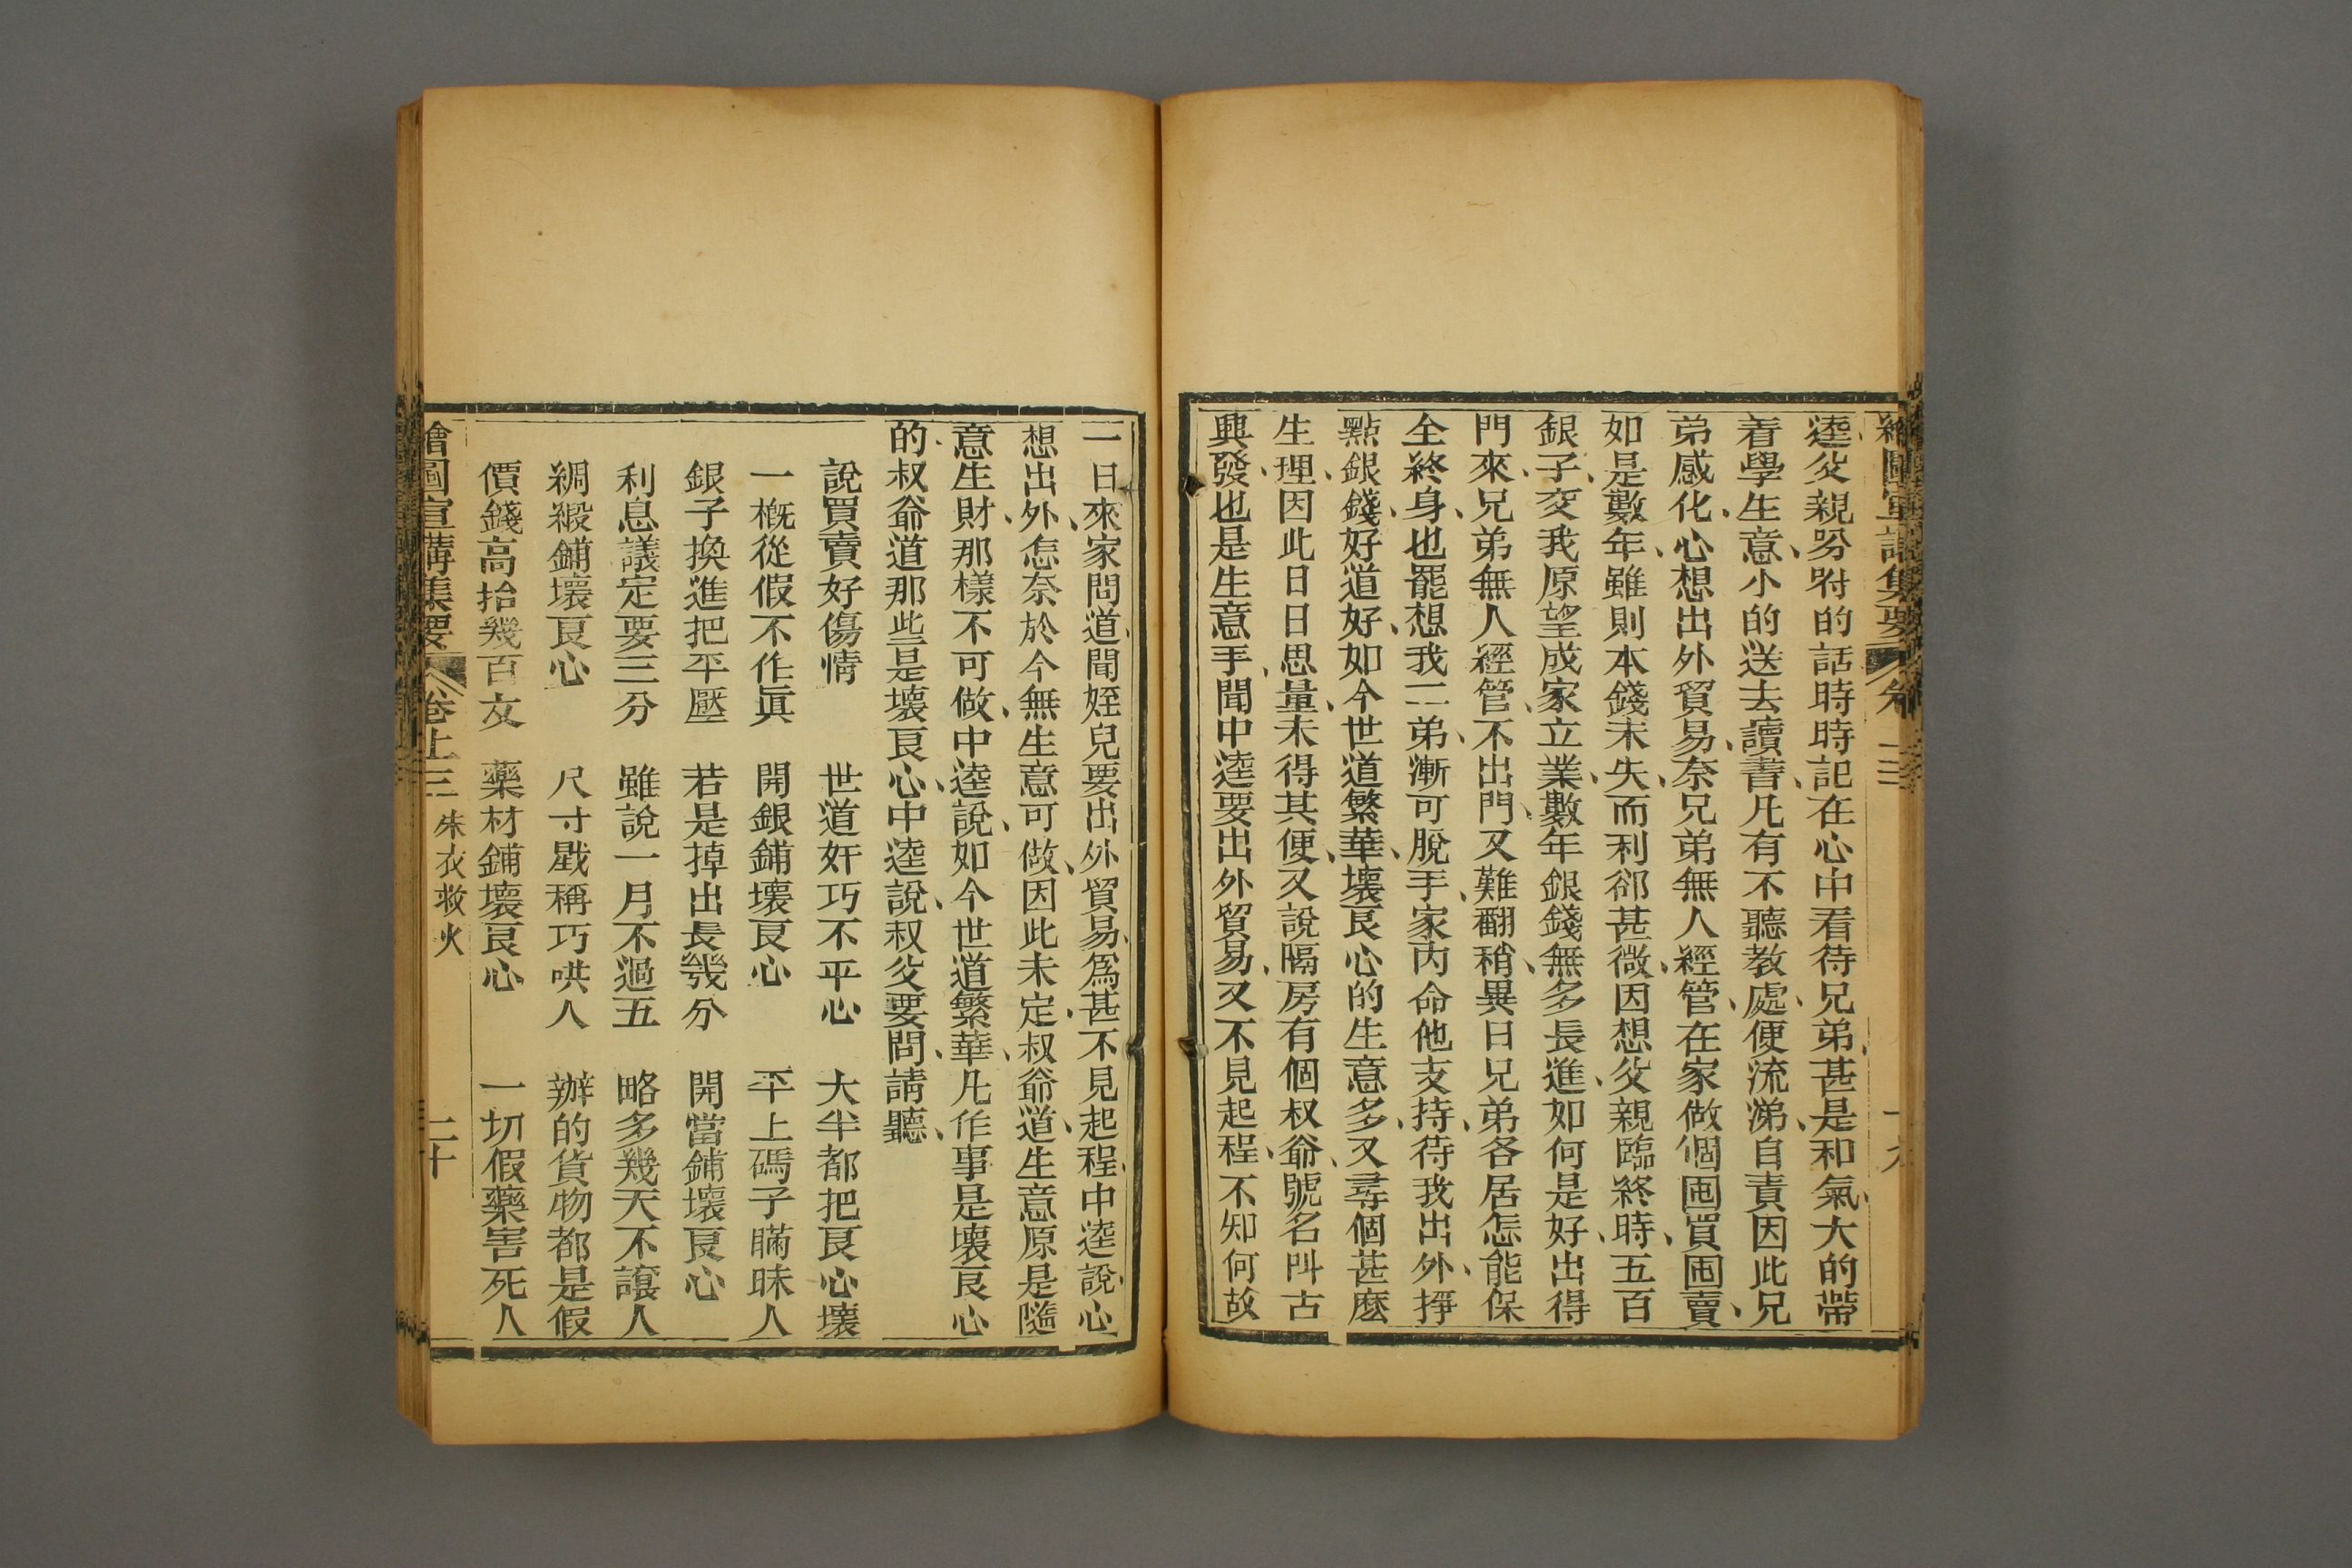 逵父親吩咐的話時時記在心中看待兄弟甚是和氣大的帶
着學生意小的送去讀書凡有不聽教處便流涕自責因此兄
弟感化心想出外貿易奈兄弟無人經管在家做個囤買囤賣
如是數年雖則本錢未失而利郤甚微因想父親臨終時五百
銀子交我原望成家立業數年銀錢無多長進如何是好出得
門來兄弟無人經管不出門又難翻稍異日兄弟各居怎能保
全終身也罷想我二弟漸可脫手家內命他支持待我出外掙
點銀錢好道好如今世道繁華壞良心的生意多又尋個甚麽
生理因此日日思量未得其便又說隔房有個叔爺號名叫古
興發也是生意手聞中逵要出外貿易又不見起程不知何故
一日來家問道聞姪兒要出外貿易爲甚不見起程中逵說心
想出外怎奈於今無生意可做因此未定叔爺道生意原是隨
意生財那樣不可做中逵說如今世道繁華凡作事是壞良心
的叔爺道那些是壞良心中逵說叔父要問請聽
說買賣好傷情 世道奸巧不平心 大半都把良心壞
一概從假不作眞 開銀鋪壞良心 平上碼子瞞昧人
銀子換進把平壓 若是掉出長幾分 開當鋪壞良心
利息議定要三分 雖說一月不過五 略多幾天不讓人
綢緞鋪壞良心 尺寸戥稱巧哄人 辦的貨物都是假
價錢高抬幾百文 藥材鋪壞良心 一切假藥害死人
繪圖宣講集要 卷上三 朱衣救火 二十